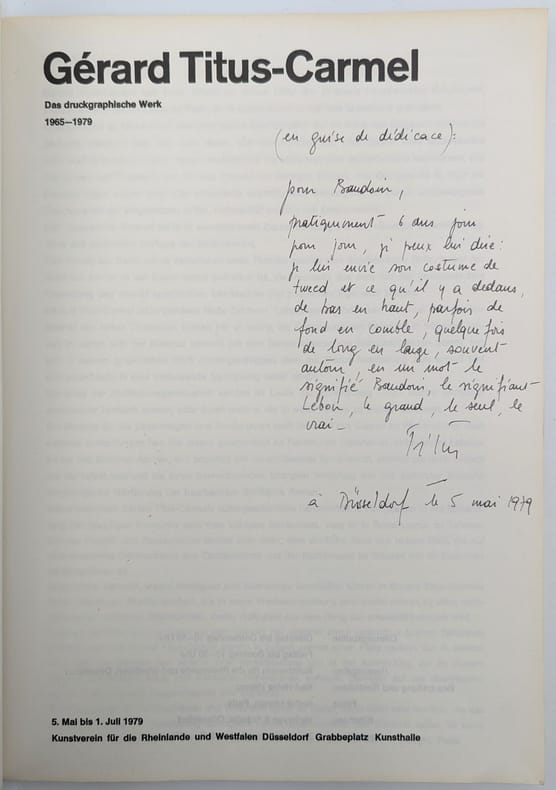 Gérard Titus-Carmel
Das druckgraphische Werk
1965—1979
(en guise de dédicace):
pour Baudoin,
pratiquement 6 ans jour
pour jour, je peux lui dire:
je lui envie son costume de
tweed et ce qu'il y a dedans,
de bas en haut, parfois de
fond en comble, quelque fois
de long en large, souvent
autour, en un mot le
signifié Baudoin, le signifiant
Lebon, le grand, le seul, le
vrai—
à Düsseldorf le 5 mai 1979
5. Mai bis 1. Juli 1979
Kunstverein für die Rheinlande und Westfalen Düsseldorf Grabbeplatz Kunsthalle